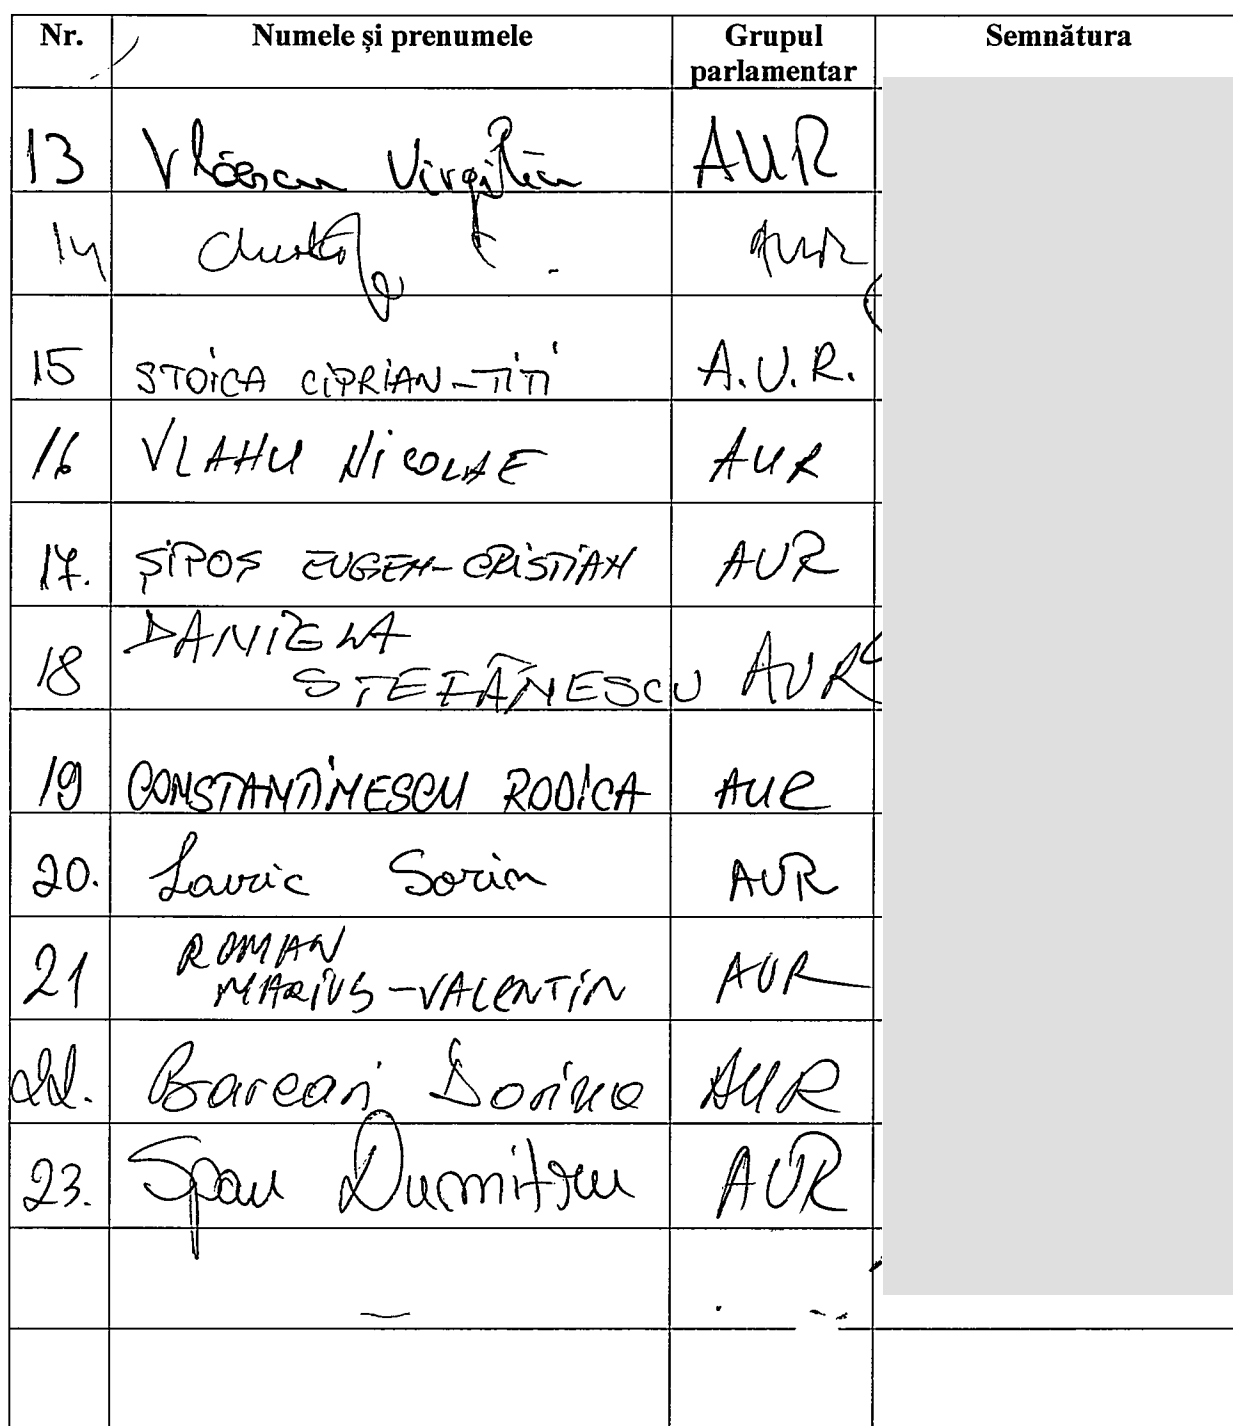 Nr. Numele și prenumele Grupul parlamentar Semnătura
13 Vlăescu Virgiliu AUR
14 AUR
15 STOICA CIPRIAN-TITI A.U.R.
16 VLAHU NICOLAE AUR
17. ȘIPOȘ EUGEN-CRISTIAN AUR
18 DANIELA
ȘTEFĂNESCU AUR
19 CONSTANTINESCU RODICA AUR
20. Lavric Sorin AUR
21 ROMAN
MARIUS-VALENTIN AUR
22. Barcari Dorina AUR
23. Spau Dumitru AUR